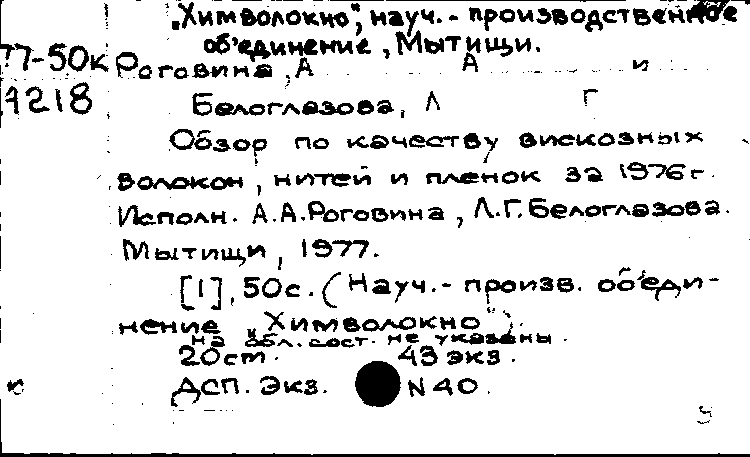 „Химволокно", науч.- производственное
об'единение, Мытищи.
77-50к Роговина, А А и
4218 Белоглазова, Л Г
Обзор по качеству вискозных
волокон, нитей и пленок за 1976г.
Исполн. А.А.Роговина, Л.Г.Белоглазова.
Мытищи, 1977.
[1], 50с. (Науч.- произв. об'еди-
нение „Химволокно").
на обл. сост. не указаны.
20ст. 43 экз.
ДСП. Экз. N 40.